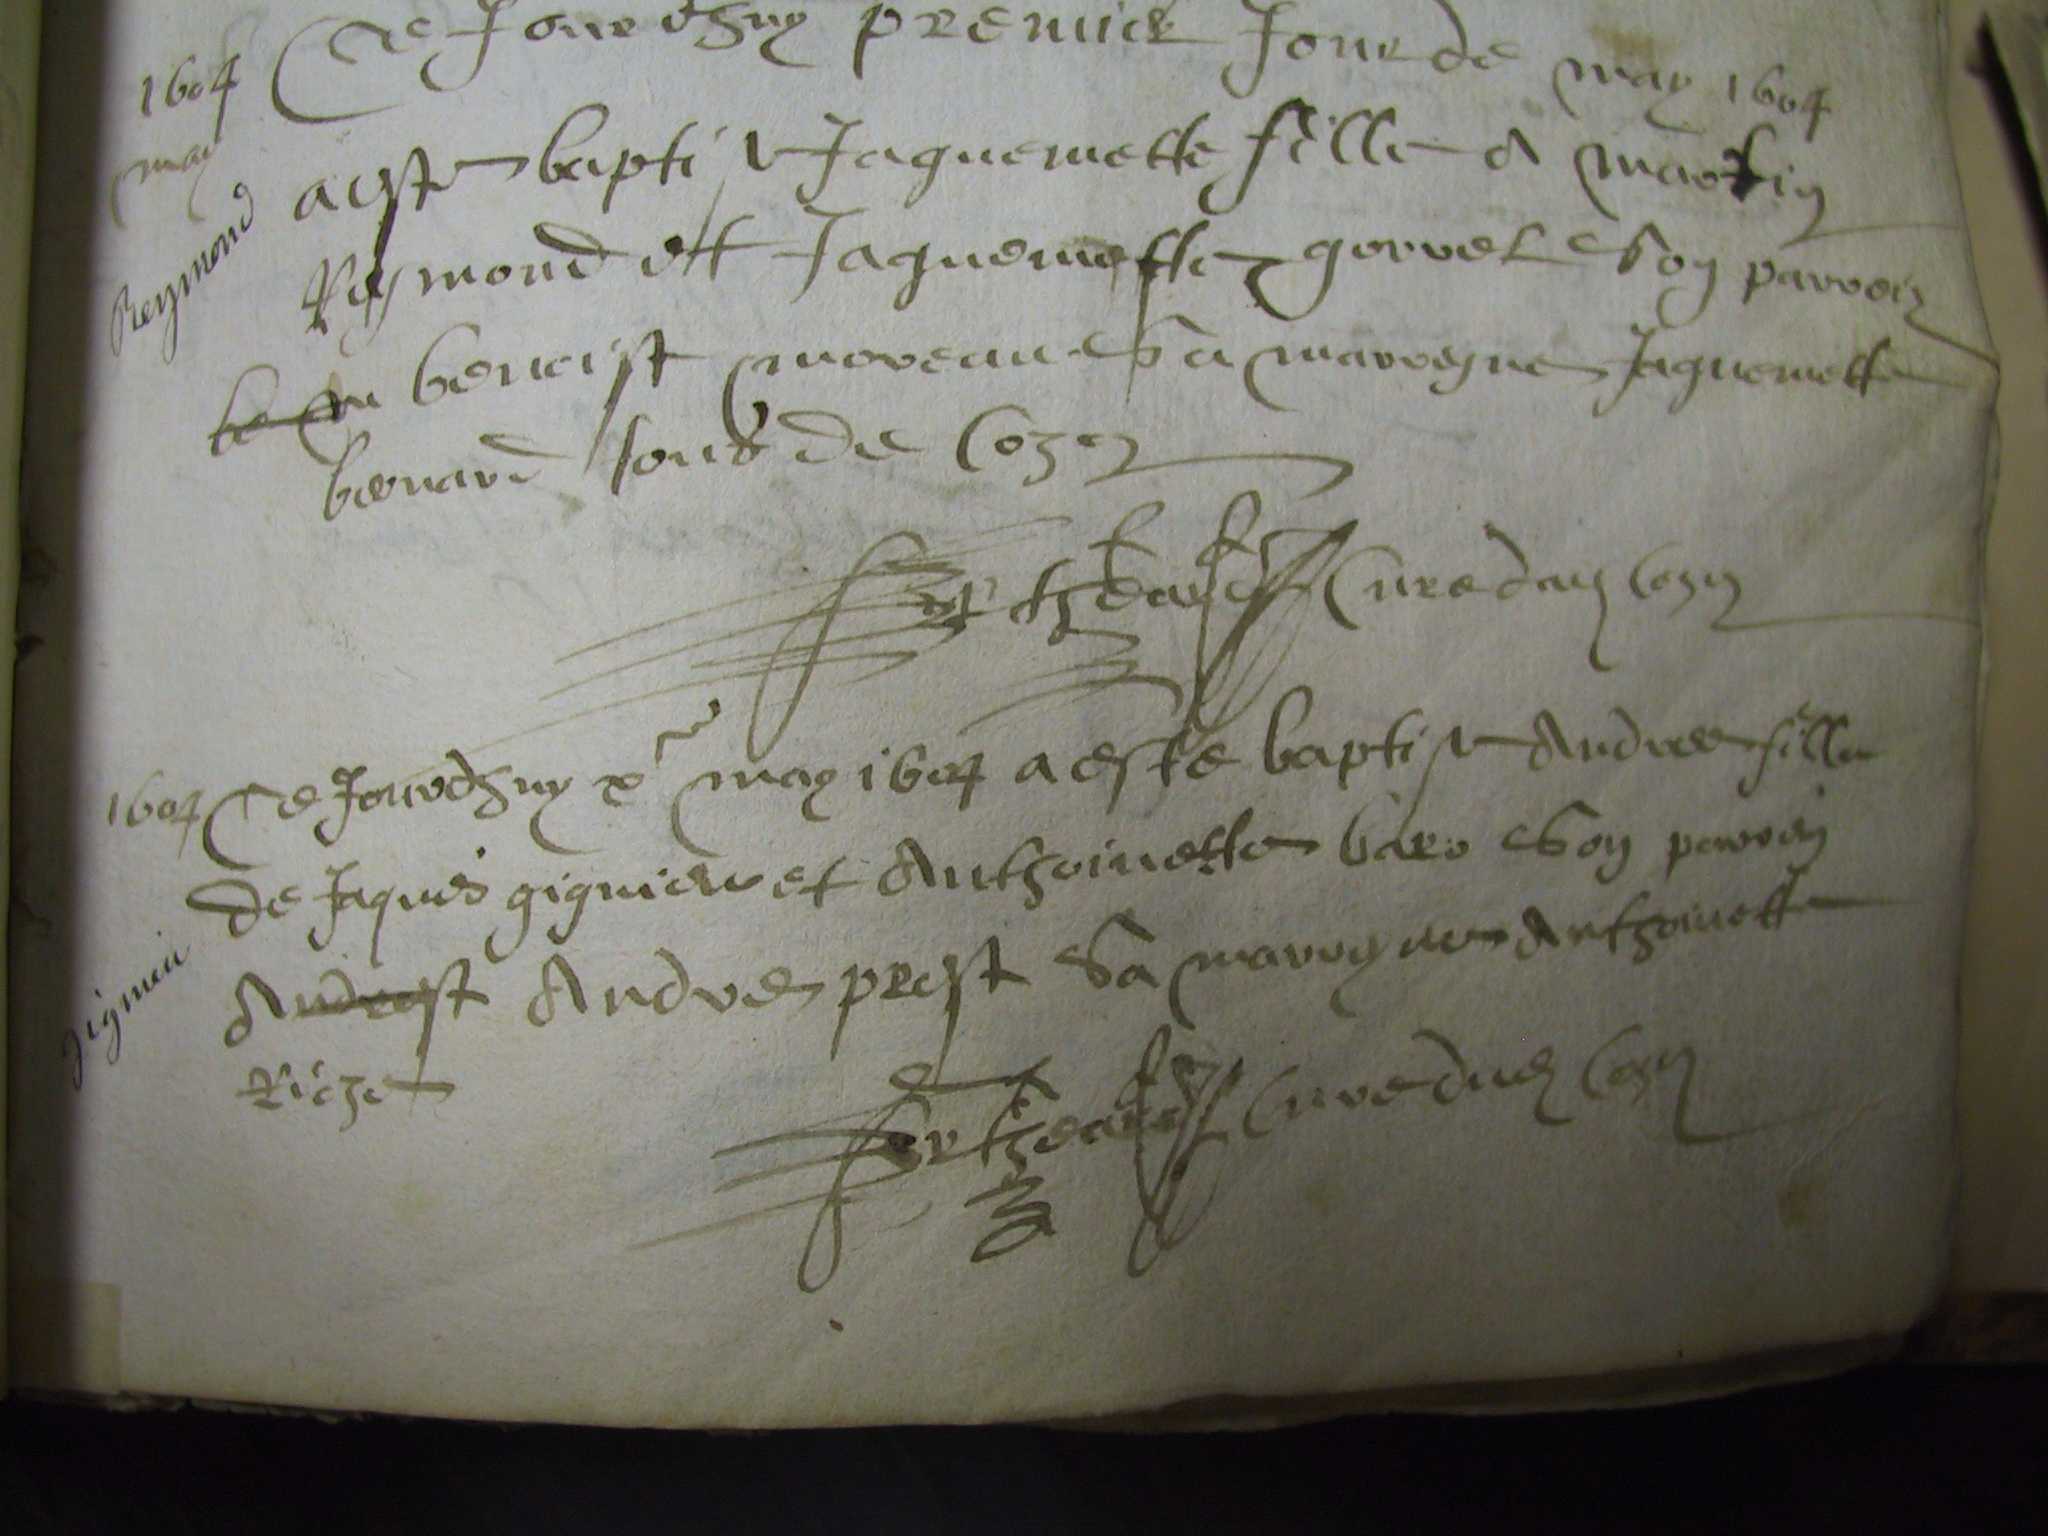 1604
may
Reymond
Ce Jourdhuy premier Jour de may 1604
a esté baptisé Jaquemette fille a martin
Reymond et Jaquemette gorvel Son parrein
benoist moreau Sa marregne Jaquemette
bernard tous de Cozon
Cure dud Cozon
1604
gignieu
Ce Jourdhuy x may 1604 a esté baptisé Andree fille
de Jaques gignieu et Anthoinette baro Son parrein
Andre prost Sa marregne Anthoinette
Riche
Cure dud Cozon